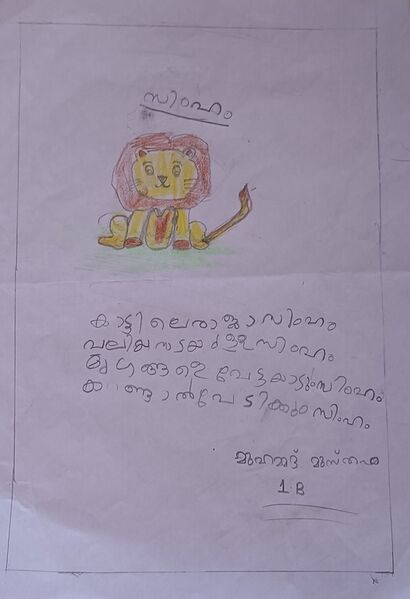 സിംഹം
കാട്ടിലെരാജാസിംഹം
വലിയസടയുള്ളസിംഹം
മൃഗങ്ങളെ വേട്ടയാടുംസിംഹം
കണ്ടാൽപേടിക്കും സിംഹം
മുഹമ്മദ് മുസ്തഫ
1.B